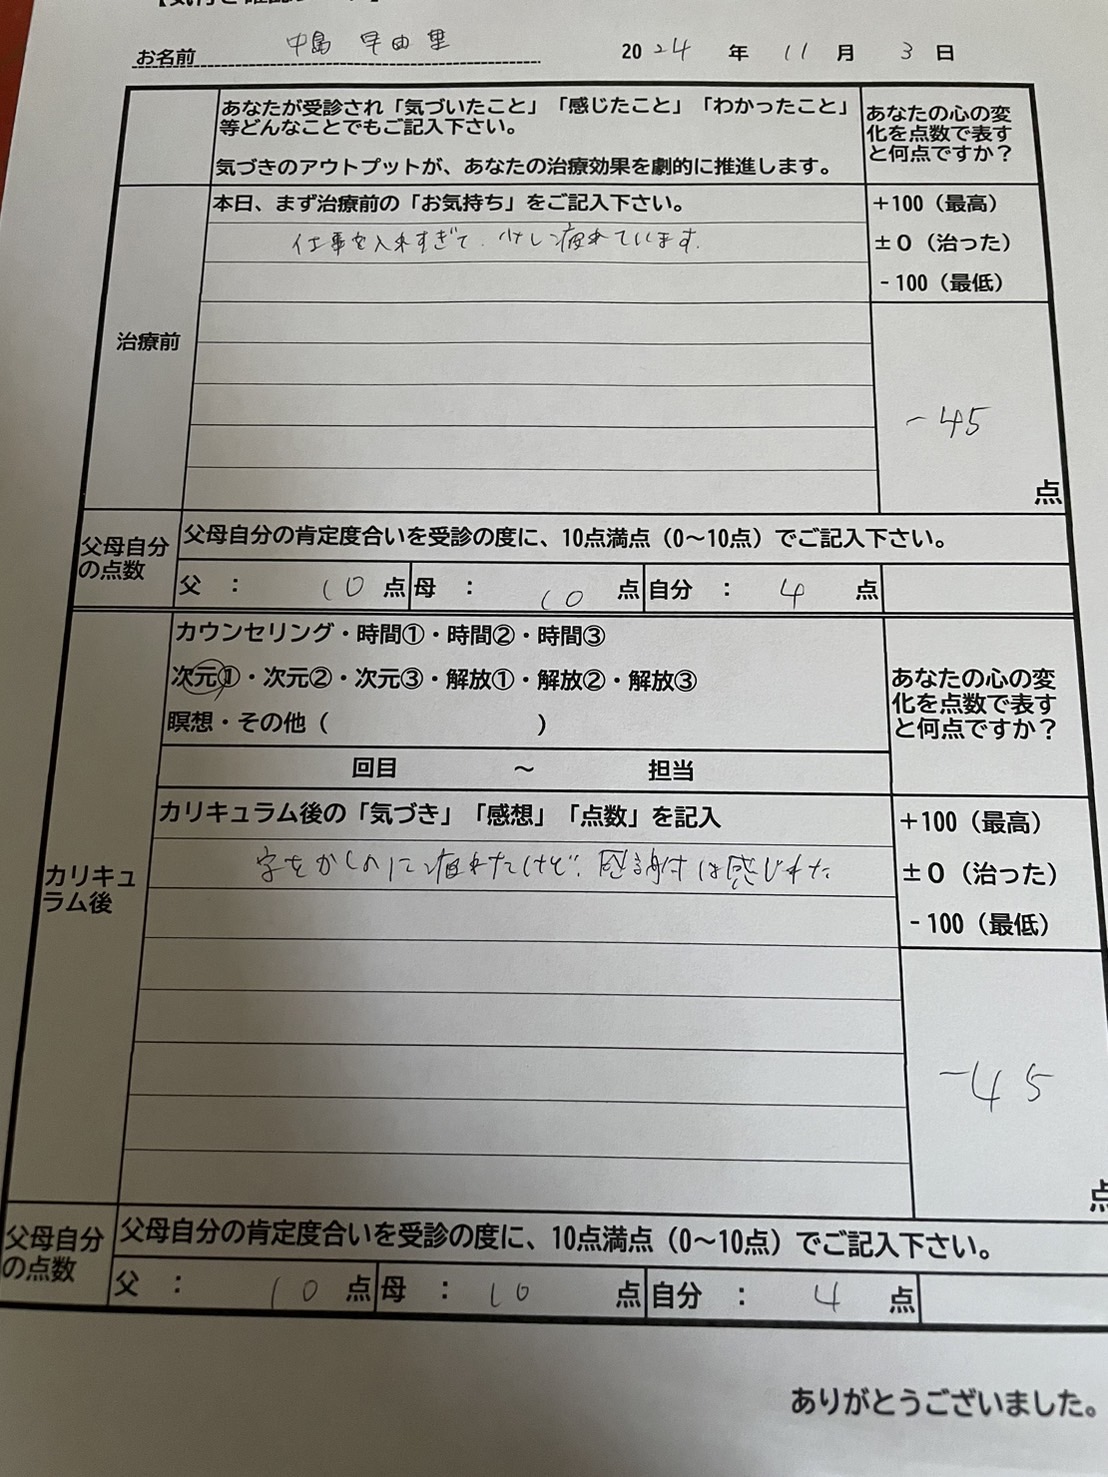 お名前 中島 早由里 2024 年 11 月 3 日
あなたが受診され「気づいたこと」「感じたこと」「わかったこと」
等どんなことでもご記入下さい。
気づきのアウトプットが、あなたの治療効果を劇的に推進します。
あなたの心の変
化を点数で表す
と何点ですか？
治療前
本日、まず治療前の「お気持ち」をご記入下さい。
仕事を入れすぎて、少し疲れています。
+100（最高）
±0（治った）
-100（最低）
-45
点
父母自分
の点数
父母自分の肯定度合いを受診の度に、10点満点（0～10点）でご記入下さい。
父 ： 10 点 母 ： 10 点 自分 ： 4 点
カウンセリング・時間①・時間②・時間③
次元①・次元②・次元③・解放①・解放②・解放③
瞑想・その他（ ）
回目 ～ 担当
あなたの心の変
化を点数で表す
と何点ですか？
カリキュ
ラム後
カリキュラム後の「気づき」「感想」「点数」を記入
字をかくのに疲れたけど、感謝は感じれた
+100（最高）
±0（治った）
-100（最低）
-45
点
父母自分
の点数
父母自分の肯定度合いを受診の度に、10点満点（0～10点）でご記入下さい。
父 ： 10 点 母 ： 10 点 自分 ： 4 点
ありがとうございました。